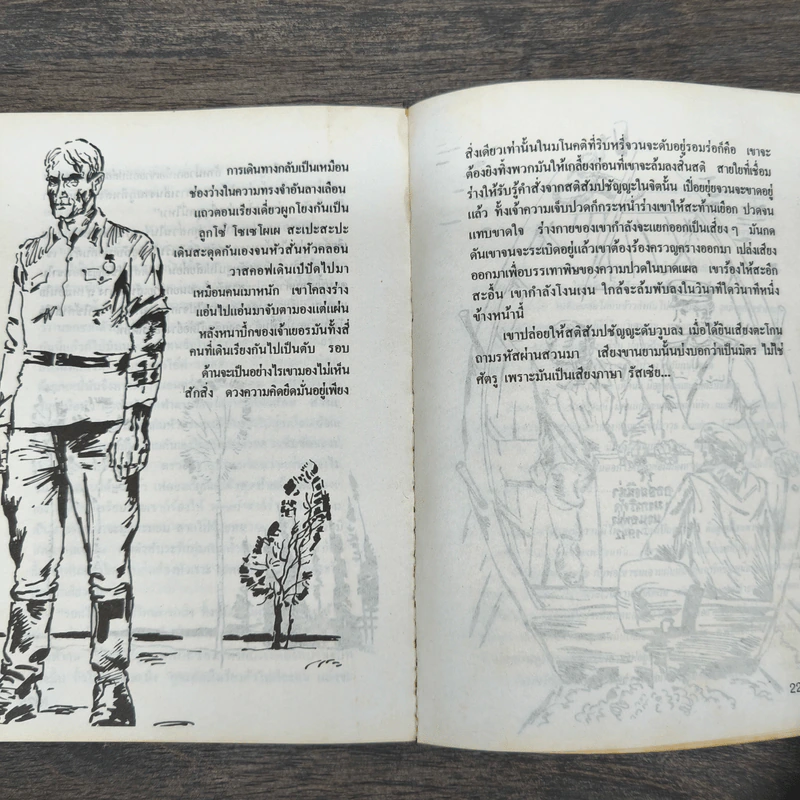 การเดินทางกลับเป็นเหมือน
ช่องว่างในความทรงจำอันลางเลือน
แถวตอนเรียงเดี่ยวผูกโยงกันเป็น
ลูกโซ่ โซเซโผเผ สะเปะสะปะ
เดินสะดุดกันเองจนหัวสั่นหัวคลอน
วาสคอฟเดินเป๋ปัดไปมา
เหมือนคนเมาหนัก เขาโคลงร่าง
แอ่นไปแอ่นมาจับตามองแต่แผ่น
หลังหนาบึ้กของเจ้าเยอรมันทั้งสี่
คนที่เดินเรียงกันไปเป็นตับ รอบ
ด้านจะเป็นอย่างไรเขามองไม่เห็น
สักสิ่ง ดวงความคิดยึดมั่นอยู่เพียง
สิ่งเดียวเท่านั้นในมโนคติที่ริบหรี่จวนจะดับอยู่รอมร่อก็คือ เขาจะ
ต้องยิงทิ้งพวกมันให้เกลี้ยงก่อนที่เขาจะล้มลงสิ้นสติ สายใยที่เชื่อม
ร่างให้รับรู้คำสั่งจากสติสัมปชัญญะในจิตนั้น เปื่อยยุ่ยจวนจะขาดอยู่
แล้ว ทั้งเจ้าความเจ็บปวดก็กระหน่ำร่างเขาให้สะท้านเยือก ปวดจน
แทบขาดใจ ร่างกายของเขากำลังจะแยกออกเป็นเสี่ยงๆ มันกด
ดันเขาจนจะระเบิดอยู่แล้วเขาต้องร้องครวญครางออกมา เปล่งเสียง
ออกมาเพื่อบรรเทาพิษของความปวดในบาดแผล เขาร้องไห้สะอึก
สะอื้น เขากำลังโงนเงน ใกล้จะล้มพับลงในวินาทีใดวินาทีหนึ่ง
ข้างหน้านี้
เขาปล่อยให้สติสัมปชัญญะดับวูบลง เมื่อได้ยินเสียงตะโกน
ถามรหัสผ่านสวนมา เสียงขานยามนั้นบ่งบอกว่าเป็นมิตร ไม่ใช่
ศัตรู เพราะมันเป็นเสียงภาษา รัสเซีย...